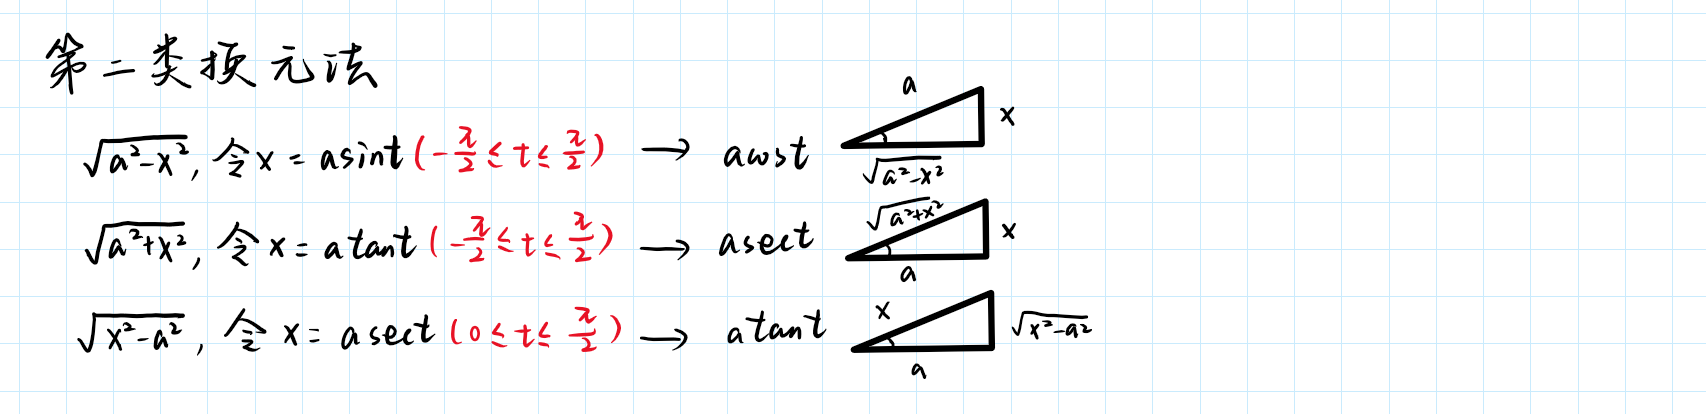 第二类换元法
√(a²-x²), 令x = asint (-π/2 ≤ t ≤ π/2) → acost a x √(a²-x²)
√(a²+x²), 令x = atant (-π/2 ≤ t ≤ π/2) → asect √(a²+x²) x a
√(x²-a²), 令x = asect (0 ≤ t ≤ π/2) → atant x √(x²-a²) a